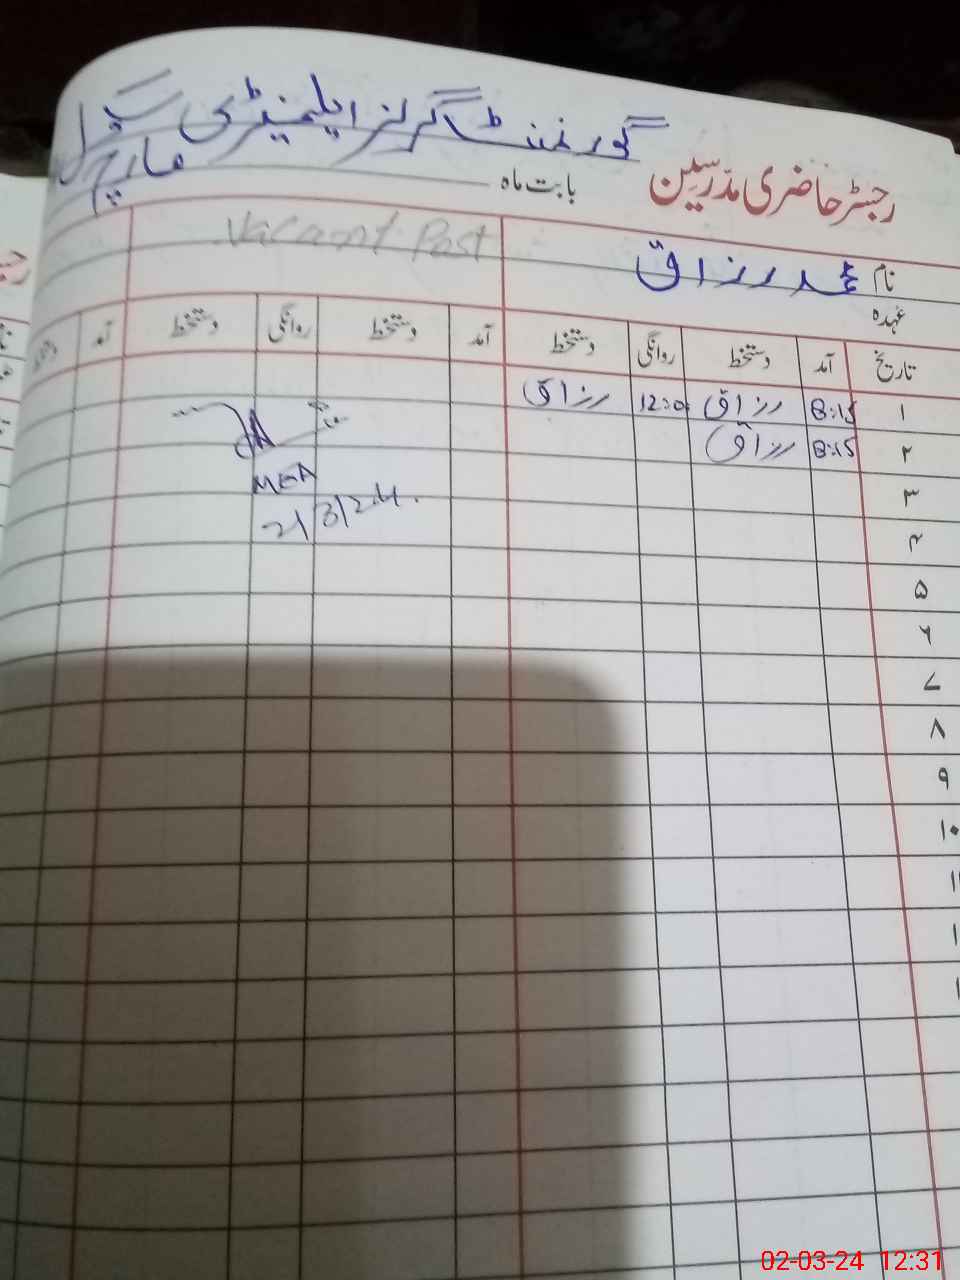 گورنمنٹ گرلز ایلیمنٹری سکول
مارچ
رجسٹر حاضری مدرسین بابت ماہ
Vacant Post
نام محمد رزاق
عہدہ
تاریخ آمد دستخط روانگی دستخط آمد دستخط روانگی دستخط آمد دستخط
۱ 8:15 رزاق 12:0 رزاق
۲ 8:15 رزاق
MEA
۳
2/3/24.
۴
۵
۶
۷
۸
۹
۱۰
02-03-24 12:31